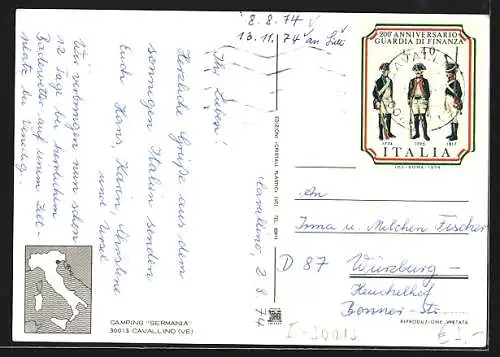 8.8.74
13.11.74 an Lilli
200° ANNIVERSARIO
GUARDIA DI FINANZA
40
CAVALLINO
1774 1795 1817
ITALIA
I.P.S.-ROMA-1974
Cavallino, 2.8.74
Ihr Lieben!
Herzliche Grüße aus dem
sonnigen Italien senden
Euch Hans, Karin, Christine
und Uwe
Wir verbringen nun schon
12 Tage bei herrlichem
Badewetter auf einem Zelt-
platz bei Venedig.
CAMPING "GERMANIA"
30013 CAVALLINO (VE)
An
Irma u. Melchior Fischer
D 87 Würzburg-
Heuchelhof
Bonner-Str.
RIPRODUZIONE VIETATA
I-30013